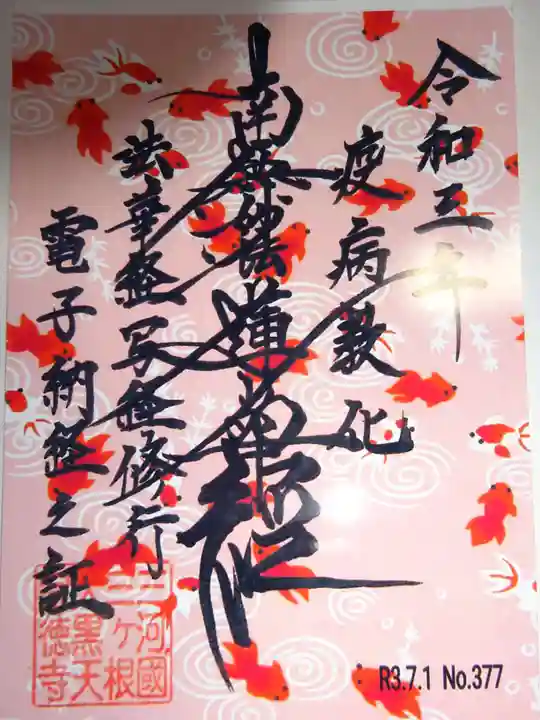 令和三年
疫病教化
南無妙法蓮華経
法華経写経修行
電子納経之証
三河國
三ケ根
大黒天
徳寺
R3.7.1 No.377